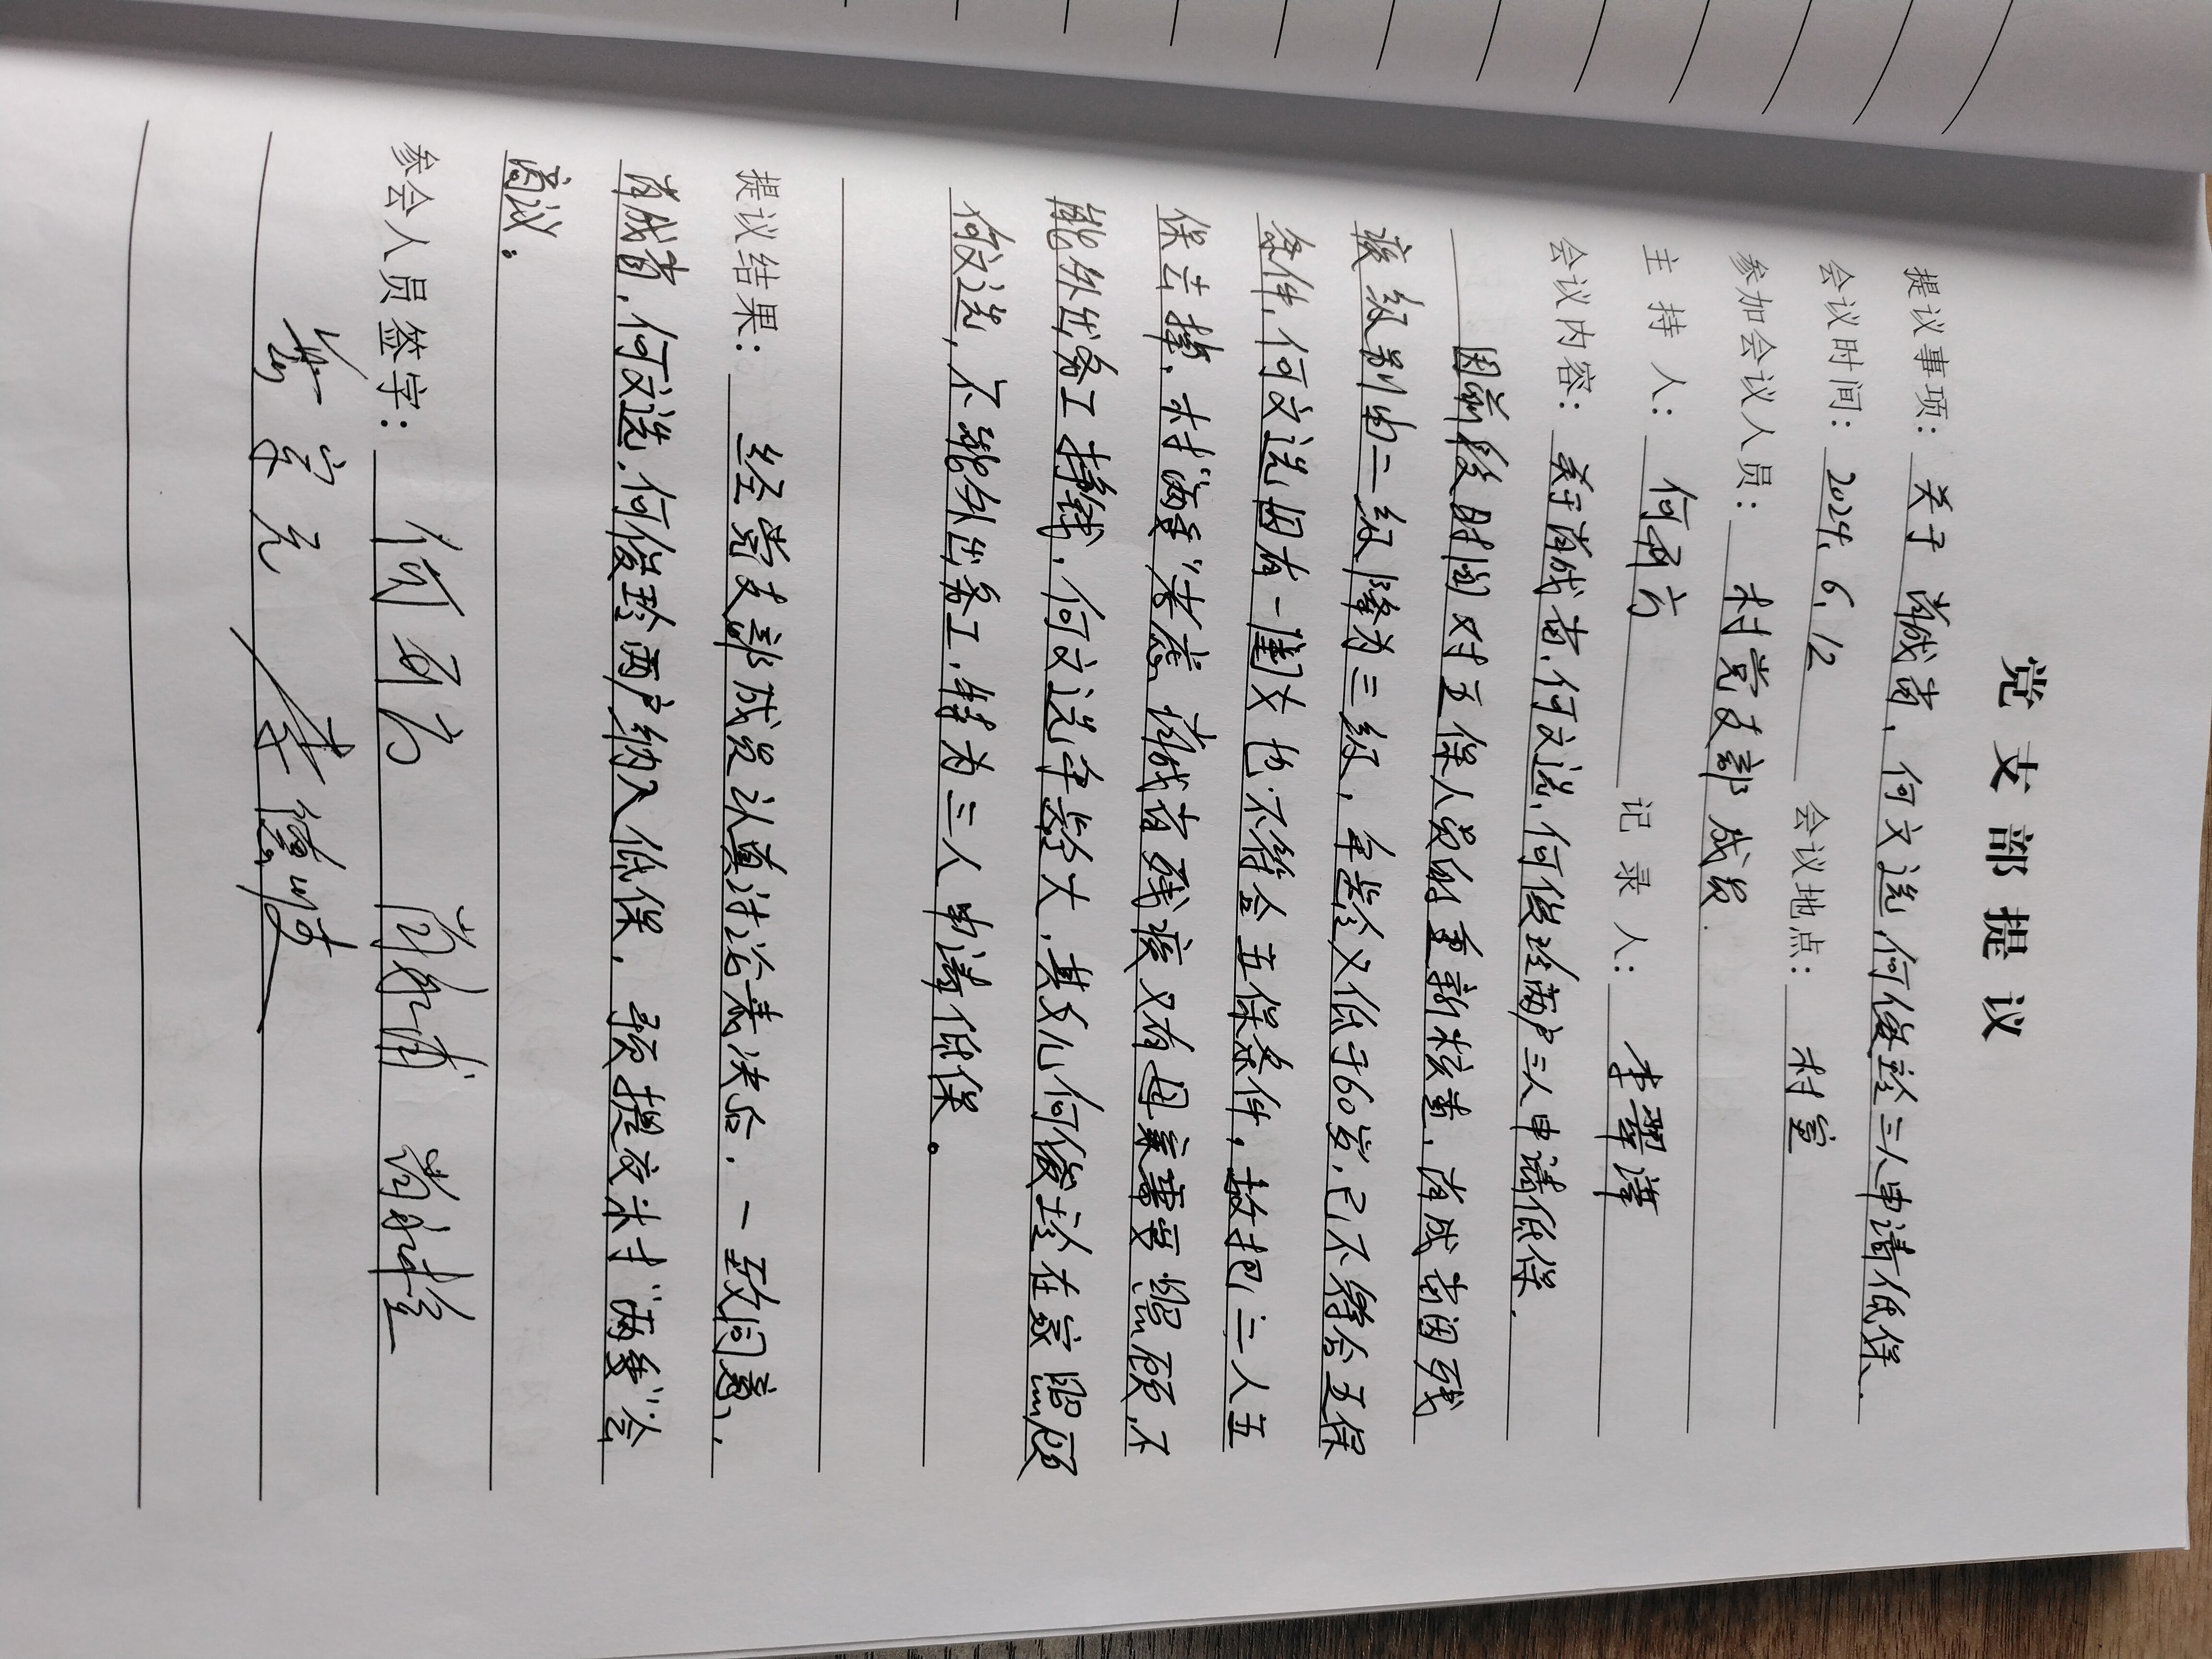 党支部提议
提议事项：关于肖成省、何文选、何俊玲三人申请低保.
会议时间：2024、6、12 会议地点：村室
参加会议人员：村党支部成员.
主持人：何万方 记录人：李翠萍
会议内容：关于肖成省、何文选、何俊玲两户三人申请低保.
因前段时间对五保人员的重新核查，肖成省因残
疾级别由二级降为三级，年龄又低于60岁，已不符合五保
条件，何文选因有一闺女也不符合五保条件，故把二人五
保去掉，村“两委”考虑肖成省残疾又有母亲需要照顾，不
能外出务工挣钱，何文选年龄大，其女儿何俊玲在家照顾
何文选，不能外出务工，特为三人申请低保。
提议结果：经党支部成员认真讨论表决后，一致同意，
肖成省，何文选，何俊玲两户纳入低保，预提交村“两委”会
商议。
参会人员签字：何万方 肖永甫 肖永栓
岳宗元 李德岐